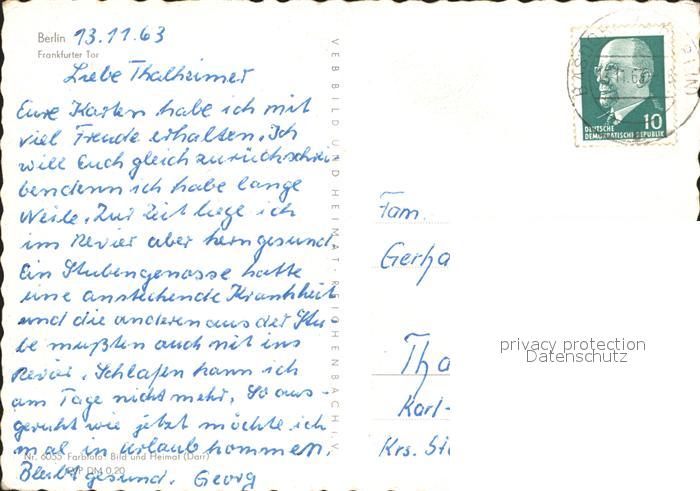 Berlin 13.11.63
Frankfurter Tor
Liebe Thalheimer
Eure Karten habe ich mit
viel Freude erhalten. Ich
will Euch gleich zurückschrei
ben denn ich habe lange
Weile. Zur Zeit liege ich
im Revier aber kerngesund.
Ein Stubengenosse hatte
eine ansteckende Krankheit
und die anderen aus der Stu
be mußten auch mit ins
Revier. Schlafen kann ich
am Tage nicht mehr. So aus-
geruht wie jetzt möchte ich
mal in Urlaub kommen.
Nr. 6055 Farbfoto: Bild und Heimat (Darr)
Bleibt gesund. Georg
EVP DM 0,20
VEB BILD UND HEIMAT · REICHENBACH I. V.
DEUTSCHE
DEMOKRATISCHE REPUBLIK
10
Fam.
Gerha
Tha
Karl-
Krs. St
privacy protection
Datenschutz